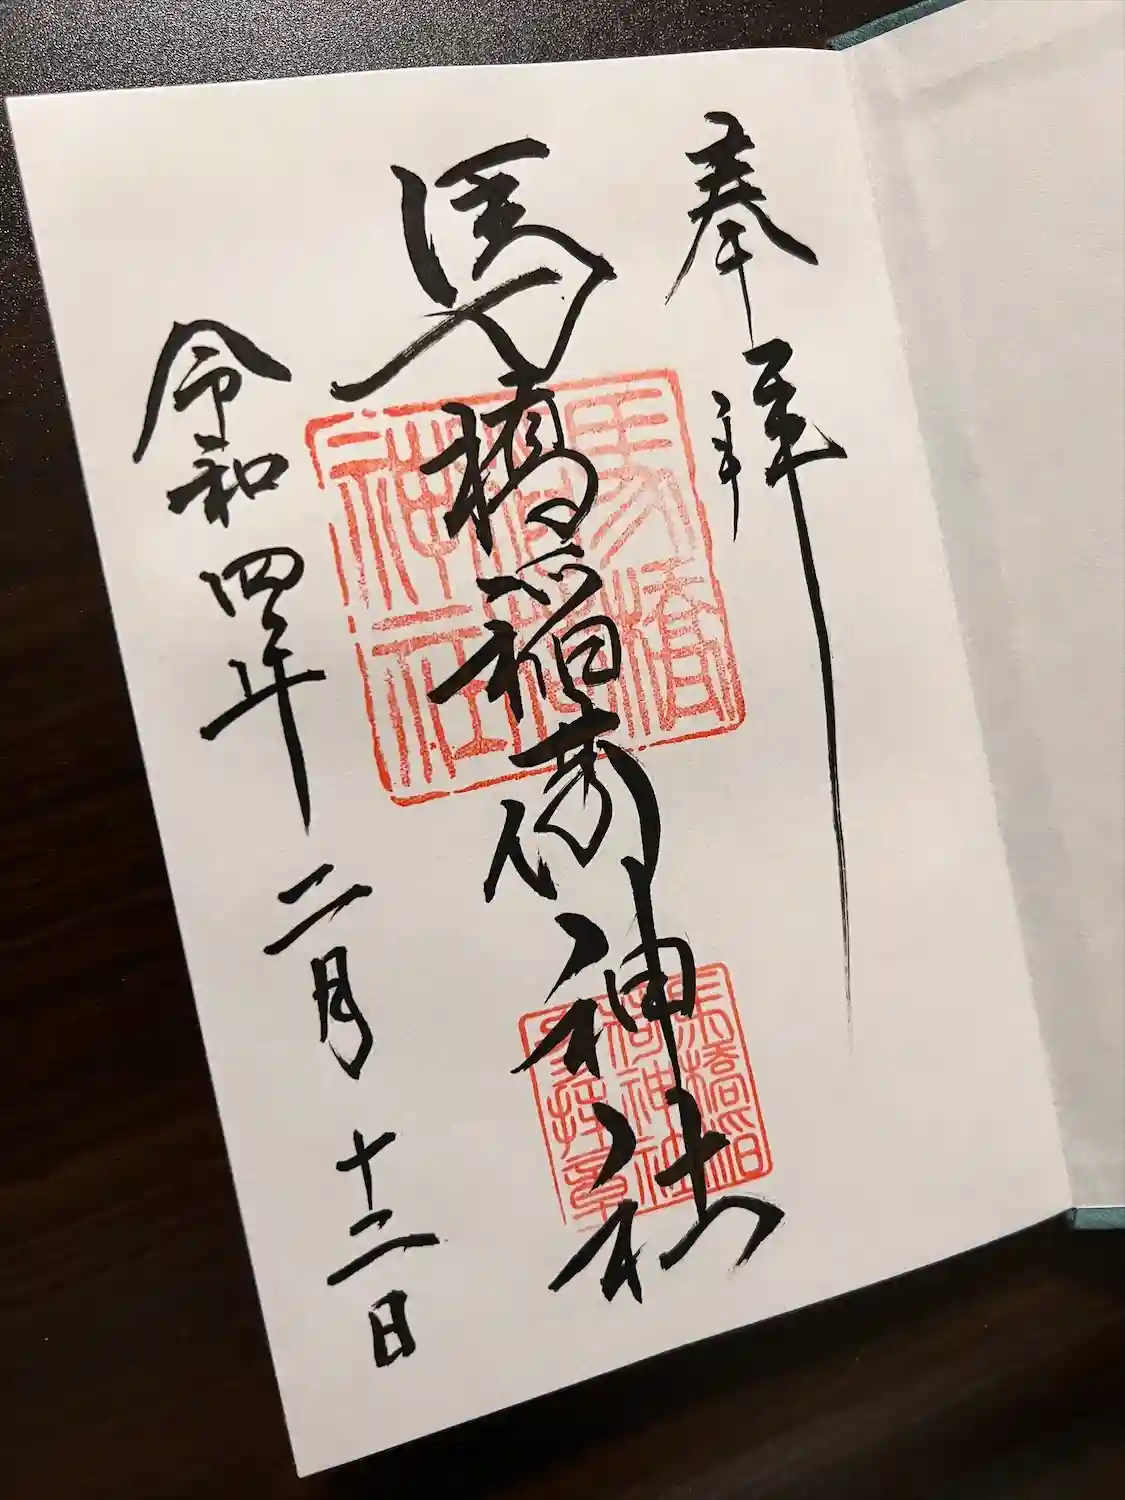 奉拝
馬橋稲荷神社
令和四年二月十二日
馬橋
稲荷
神社
馬橋稲
荷神社